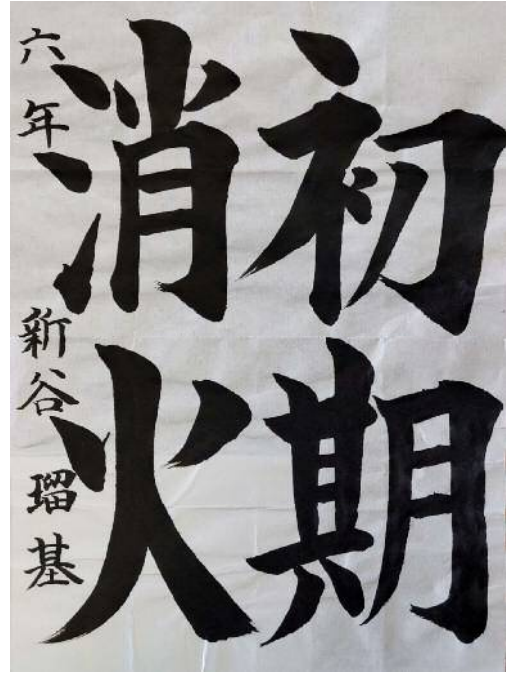 初期
消火
六年 新谷瑠基